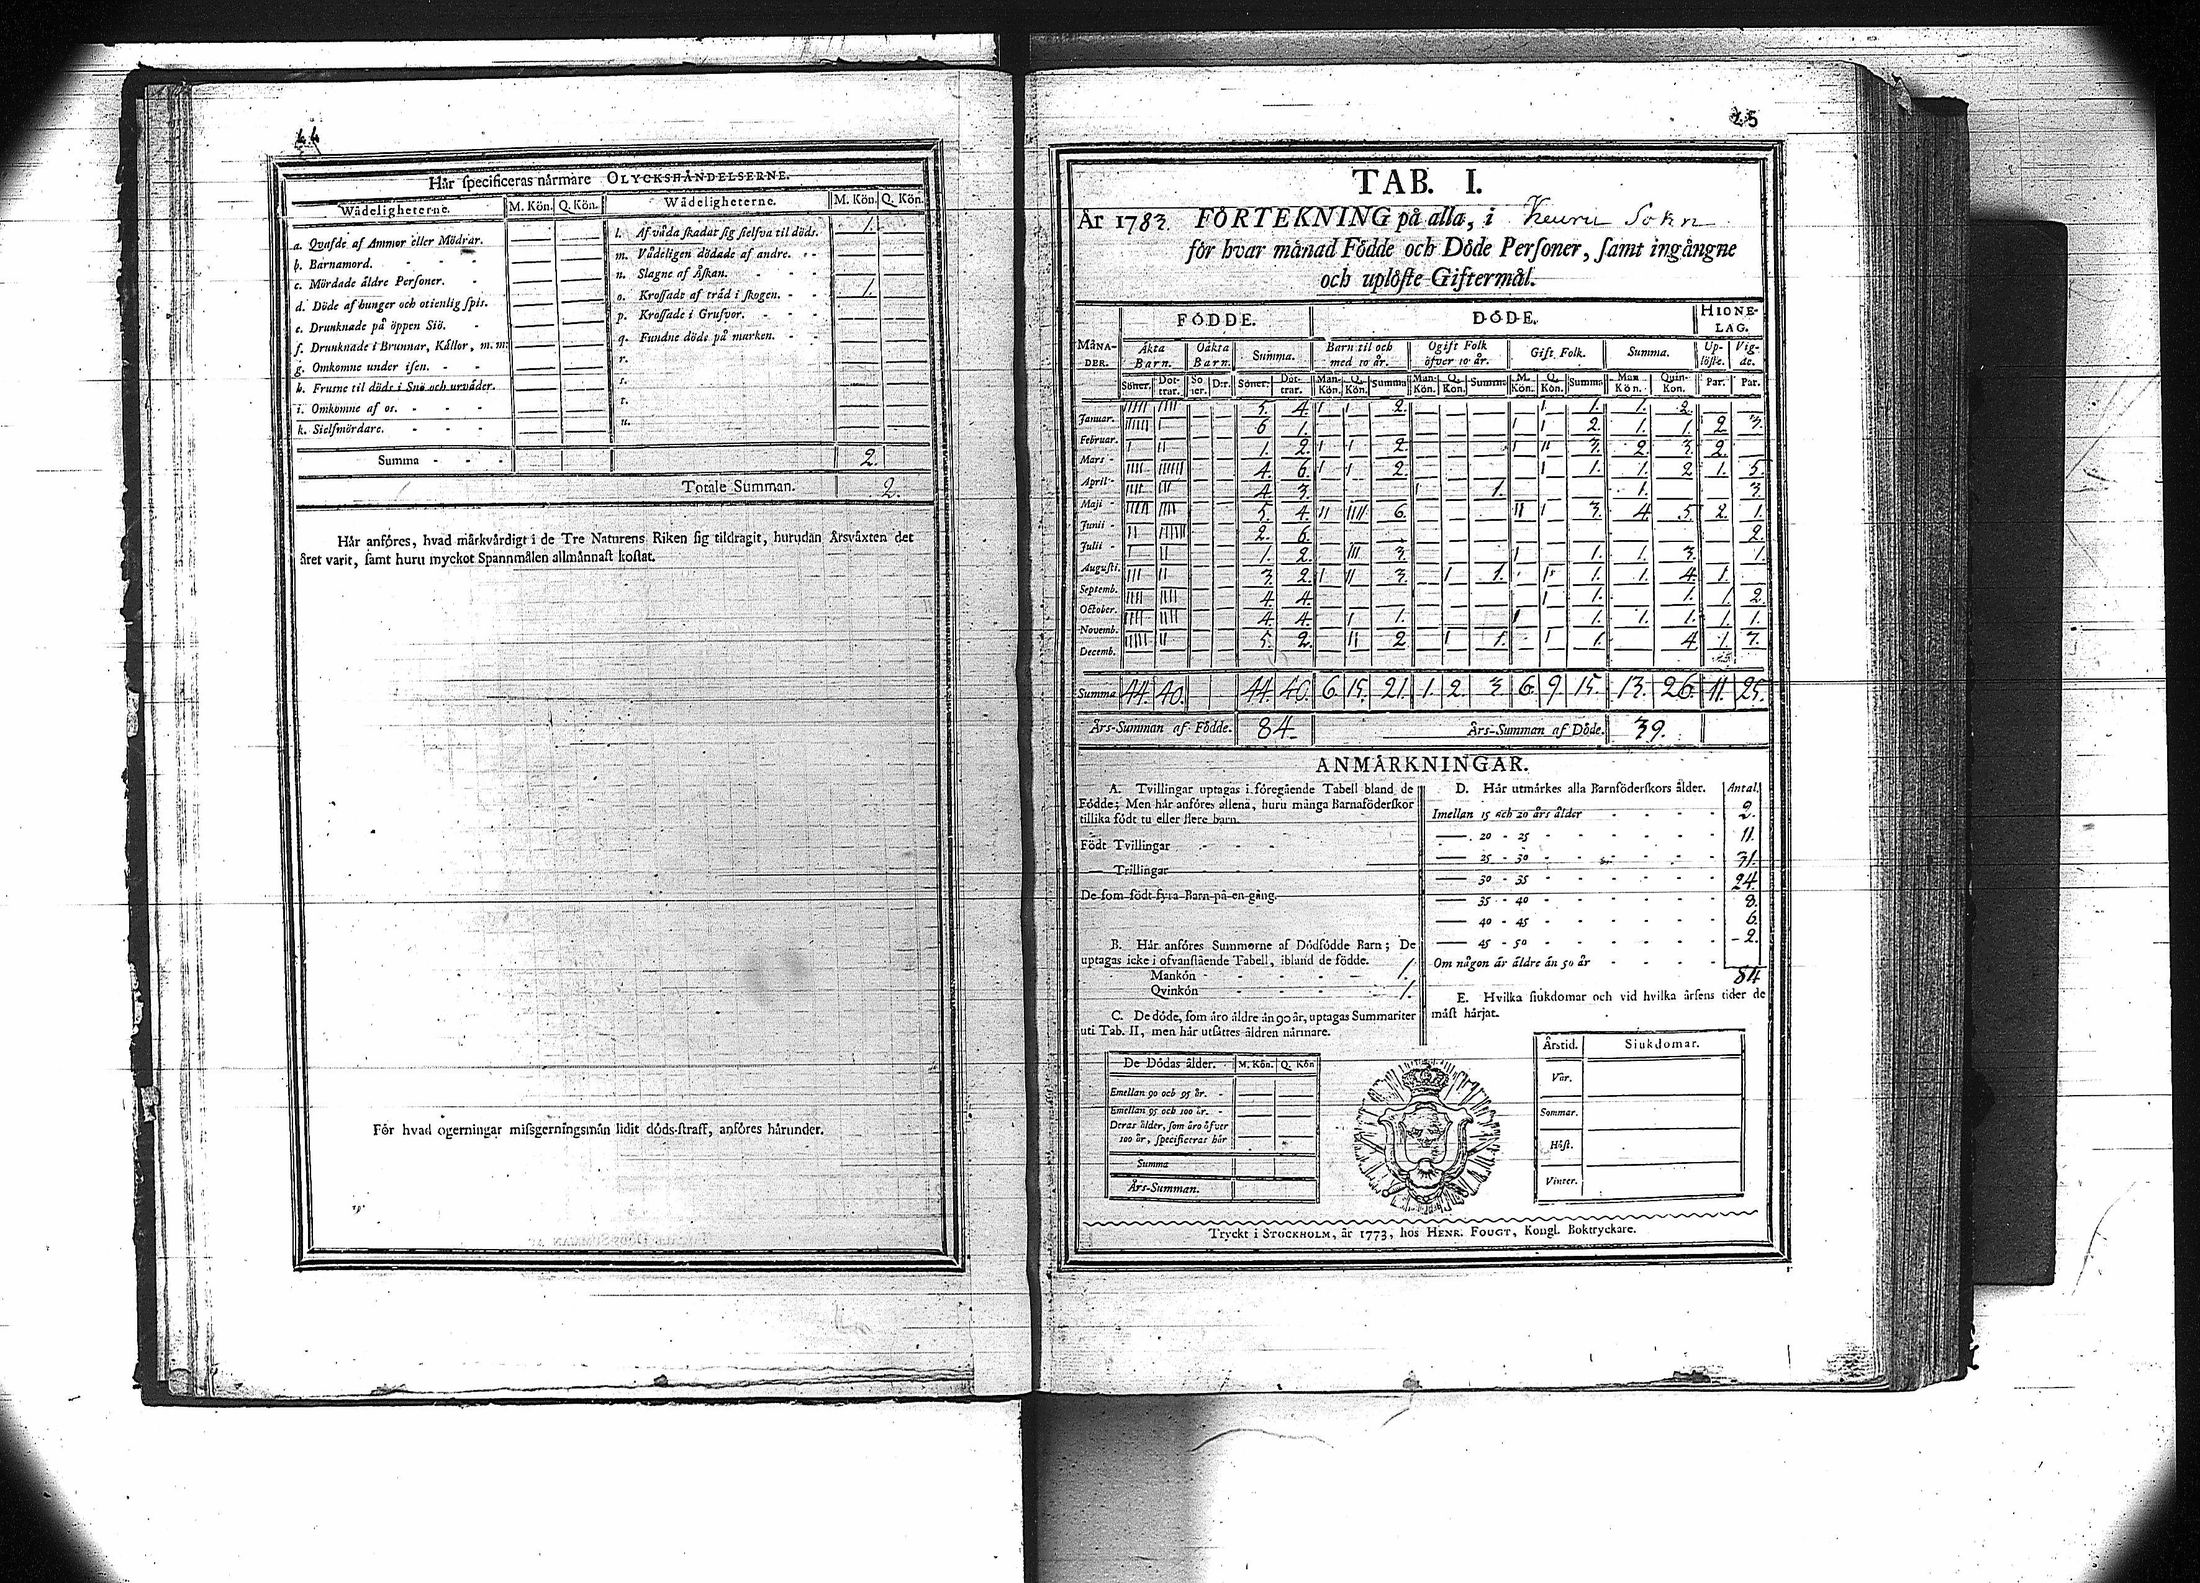 44
Hår specificeras nårmare OLYCKSHÅNDELSERNE.
Wådeligheterne. M. Kön. Q. Kön. Wådeligheterne. M. Kön. Q. Kön.
a. Qvafde af Ammor eller Mödrar. — — l. Af våda skadat sig sielfva til döds. 1. —
b. Barnamord. — — m. Vådeligen dödade af andre. — —
c. Mördade äldre Personer. — — n. Slagne af Åskan. — —
d. Döde af hunger och otienlig spis. — — o. Krossade af träd i skogen. 1. —
e. Drunknade på öppen Siö. — — p. Krossade i Grufvor. — —
f. Drunknade i Brunnar, Källor, m. m: — — q. Fundne döde på marken. — —
g. Omkomne under isen. — — r. — —
h. Frusne til döds i Snö och urväder. — — s. — —
i. Omkomne af os. — — t. — —
k. Sielfmördare. — — u. — —
Summa - - - 2.
Totale Summan. 2.
Hår anföres, hvad mårkvårdigt i de Tre Naturens Riken sig tildragit, hurudan Årsvåxten det
året varit, samt huru myckot Spannmålen allmånnast kostat.
För hvad ogerningar missgerningsmån lidit döds-straff, anföres hårunder.
45
TAB. I.
År 1783. FÖRTEKNING på alla, i Keuru Sokn
för hvar månad Födde och Döde Personer, samt ingångne
och uplöste Giftermål.
MÅNA-DER. FÖDDE. DÖDE. HIONE-LAG.
Äkta Barn. Oåkta Barn. Summa. Barn til och med 10 år. Ogift Folk öfver 10 år. Gift Folk. Summa. Up-löste. Vig-de.
Söner. Döt-trar. So ner. D:r. Söner. Döt-trar. Man-Kön. Q. Kön. Summa Man-Kön. Q. Kön. Summa M. Kön. Q. Kön. Summa Man Kön. Quin-Kon. Par. Par.
Januar. IIIII IIII — — 5. 4. I I 2. — — — — I 1. 1. 2. — —
Februar. IIIIII I — — 6 1. — — — — — — I I 2. 1. 1. 2. 3.
Mars - I II — — 1. 2. I I 2. — — — I II 3. 2. 3. 2. —
April - IIII IIIIII — — 4. 6. I I 2. — — — — I 1. 1. 2 1. 5.
Maji - IIII III — — 4. 3. — — — I — 1. — — — 1. — — 3.
Junii - IIIII IIII — — 5. 4. II IIII 6. — — — II I 3. 4. 5. 2. 1.
Julii - II IIIIII — — 2. 6. — — — — — — — — — — — — 2.
Augusti. I II — — 1. 2. — III 3. — — — I — 1. 1. 3. — 1.
Septemb. III II — — 3. 2. I II 3. — I 1. — I 1. 1. 4. 1. —
October. IIII IIII — — 4. 4. — — — — — — — I 1. — 1. 1. 2.
Novemb. IIII IIII — — 4. 4. — I 1. — — — I — 1. 1. 1. 1. 1.
Decemb. IIIII II — — 5. 2. — II 2 — I 1. — I 1. — 4 1. 7.
Summa 44. 40. 44. 40. 6. 15. 21. 1. 2. 3. 6. 9. 15. 13. 26. 11. 25.
Års-Summan af Födde. 84. Års-Summan af Döde. 39.
ANMÅRKNINGAR.
A. Tvillingar uptagas i föregående Tabell bland de
Födde; Men hår anföres allena, huru många Barnaföderskor
tillika födt tu eller flere barn.
Födt Tvillingar - - -
— Trillingar - - -
De som födt fyra Barn på en gång.
B. Hår anföres Summorne af Dödfödde Barn; De
uptagas icke i ofvanstående Tabell, ibland de födde.
Mankön - - - - 1.
Qvinkön - - - - 1.
C. De döde, som åro åldre ån 90 år, uptagas Summariter
uti Tab. II, men hår utsåttes åldren nårmare.
De Dödas ålder. M. Kön. Q. Kön
Emellan 90 och 95 år. - — —
Emellan 95 och 100 år. - — —
Deras ålder, som åro öfver
100 år, specificeras hår — —
Summa
Års-Summan.
D. Hår utmårkes alla Barnföderskors ålder. Antal.
Imellan 15 och 20 års ålder - - - - 2.
— 20 - 25 - - - - 11.
— 25 - 30 - - - - 31.
— 30 - 35 - - - - 24.
— 35 - 40 - - - - 8.
— 40 - 45 - - - - 6.
— 45 - 50 - - - - 2.
Om någon år åldre ån 50 år - - - -
84
E. Hvilka siukdomar och vid hvilka årsens tider de
måst hårjat.
Årstid. Siukdomar.
Vår.
Sommar.
Höst.
Vinter.
Tryckt i STOCKHOLM, år 1773, hos HENR. FOUGT, Kongl. Boktryckare.